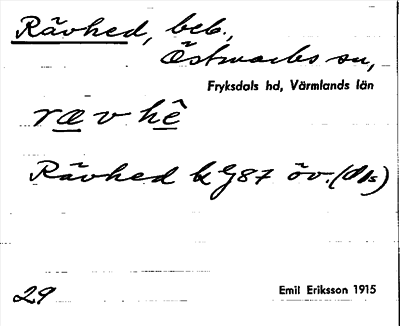 Rävhed, beb.,
Östmarks sn,
Fryksdals hd, Värmlands län
rævhê
Rävhed k G87 öv. (ds)
29
Emil Eriksson 1915